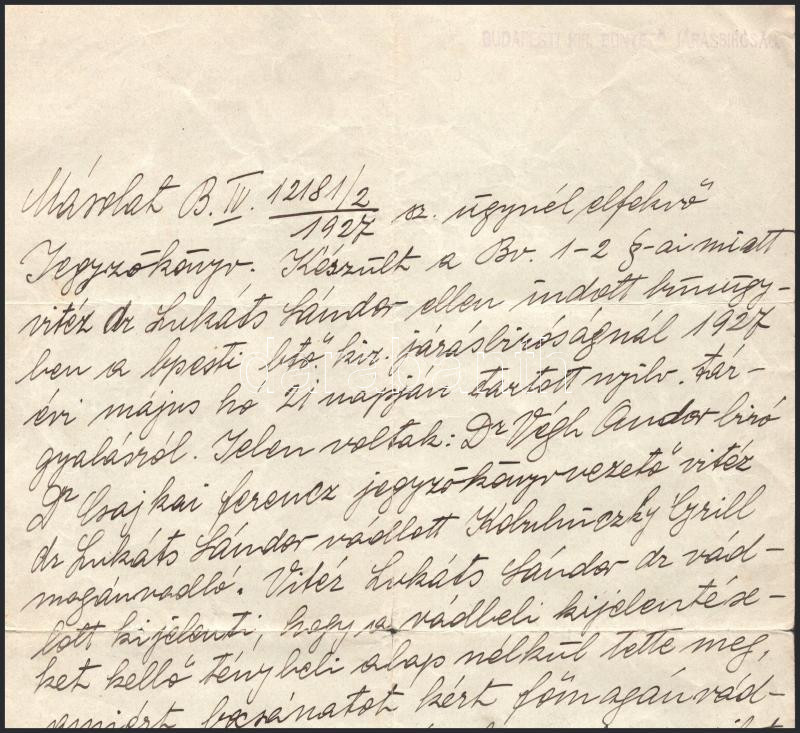 BUDAPESTI KIR. BÜNTETŐ JÁRÁSBIRÓSÁG
Másolat B. IV. 12181/2
1927 sz. ügynél elfekvő
Jegyzőkönyv. Készült a Bv. 1-2 §-ai miatt
vitéz dr Lukáts Sándor ellen indott bünügy-
ben a bpesti btő. kir. járásbiróságnál 1927
évi május hó 21 napján tartott nyilv. tár-
gyalásról. Jelen voltak: Dr Végh Andor biró
Dr Csajkai Ferencz jegyzőkönyvvezető vitéz
dr Lukáts Sándor vádlott Cyrill
magánvádló. Vitéz Lukáts Sándor dr vád-
lott kijelenti, hogy a vádbeli kijelentése-
ket kellő ténybeli alap nélkül tette meg,
amiért bocsánatot kért főmagánvád-